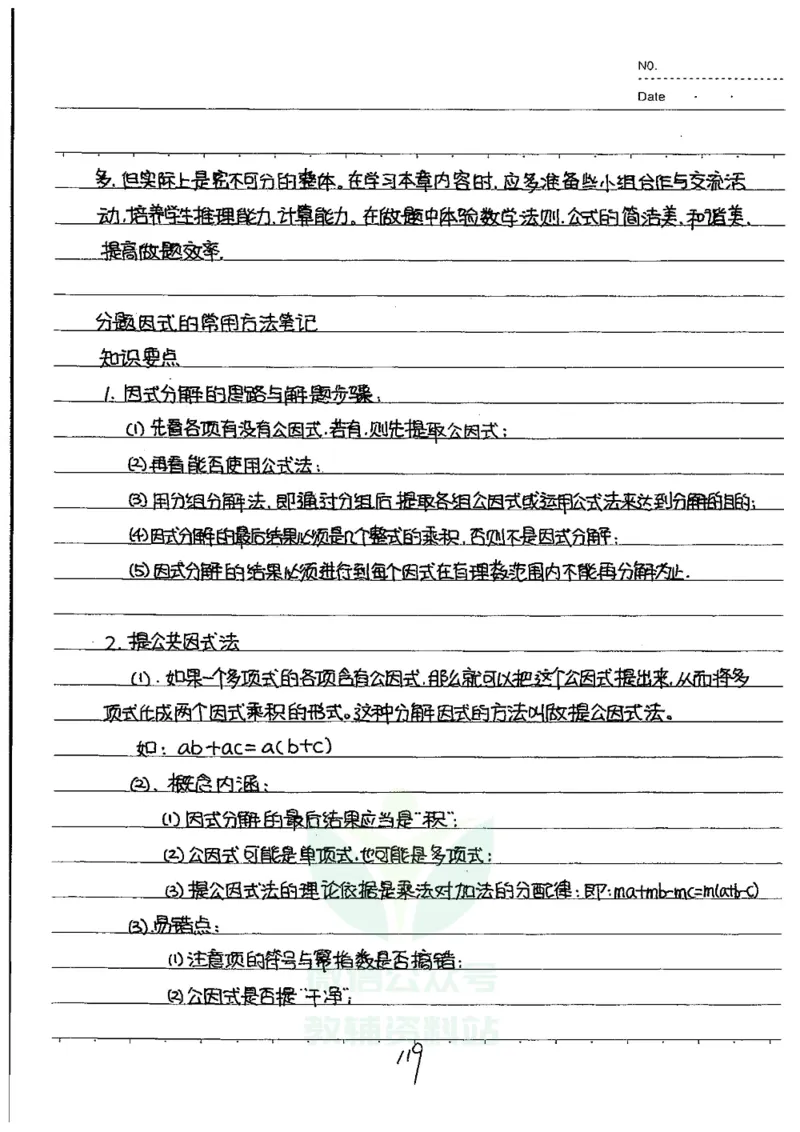 NO.
Date
多,但实际上是密不可分的整体。在学习本章内容时,应多准备些小组合作与交流活
动,培养学生推理能力,计算能力。在做题中体验数学法则,公式的简洁美,和谐美,
提高做题效率.
分题因式的常用方法笔记
知识要点
1. 因式分解的思路与解题步骤;
(1) 先看各项有没有公因式,若有,则先提取公因式;
(2) 再看能否使用公式法;
(3) 用分组分解法,即通过分组后提取各组公因式或运用公式法来达到分解的目的;
(4) 因式分解的最后结果必须是几个整式的乘积,否则不是因式分解;
(5) 因式分解的结果必须进行到每个因式在有理数范围内不能再分解为止.
2. 提公共因式法
(1). 如果一个多项式的各项含有公因式,那么就可以把这个公因式提出来,从而将多
项式化成两个因式乘积的形式。这种分解因式的方法叫做提公因式法。
如: ab+ac=a(b+c)
(2). 概念内涵:
(1) 因式分解的最后结果应当是“积”;
(2) 公因式可能是单项式,也可能是多项式;
(3) 提公因式法的理论依据是乘法对加法的分配律;即:ma+mb-mc=m(a+b-c)
(3).易错点:
(1) 注意项的符号与幂指数是否搞错;
(2) 公因式是否提“干净”;
微信公众号
教辅资料站
119